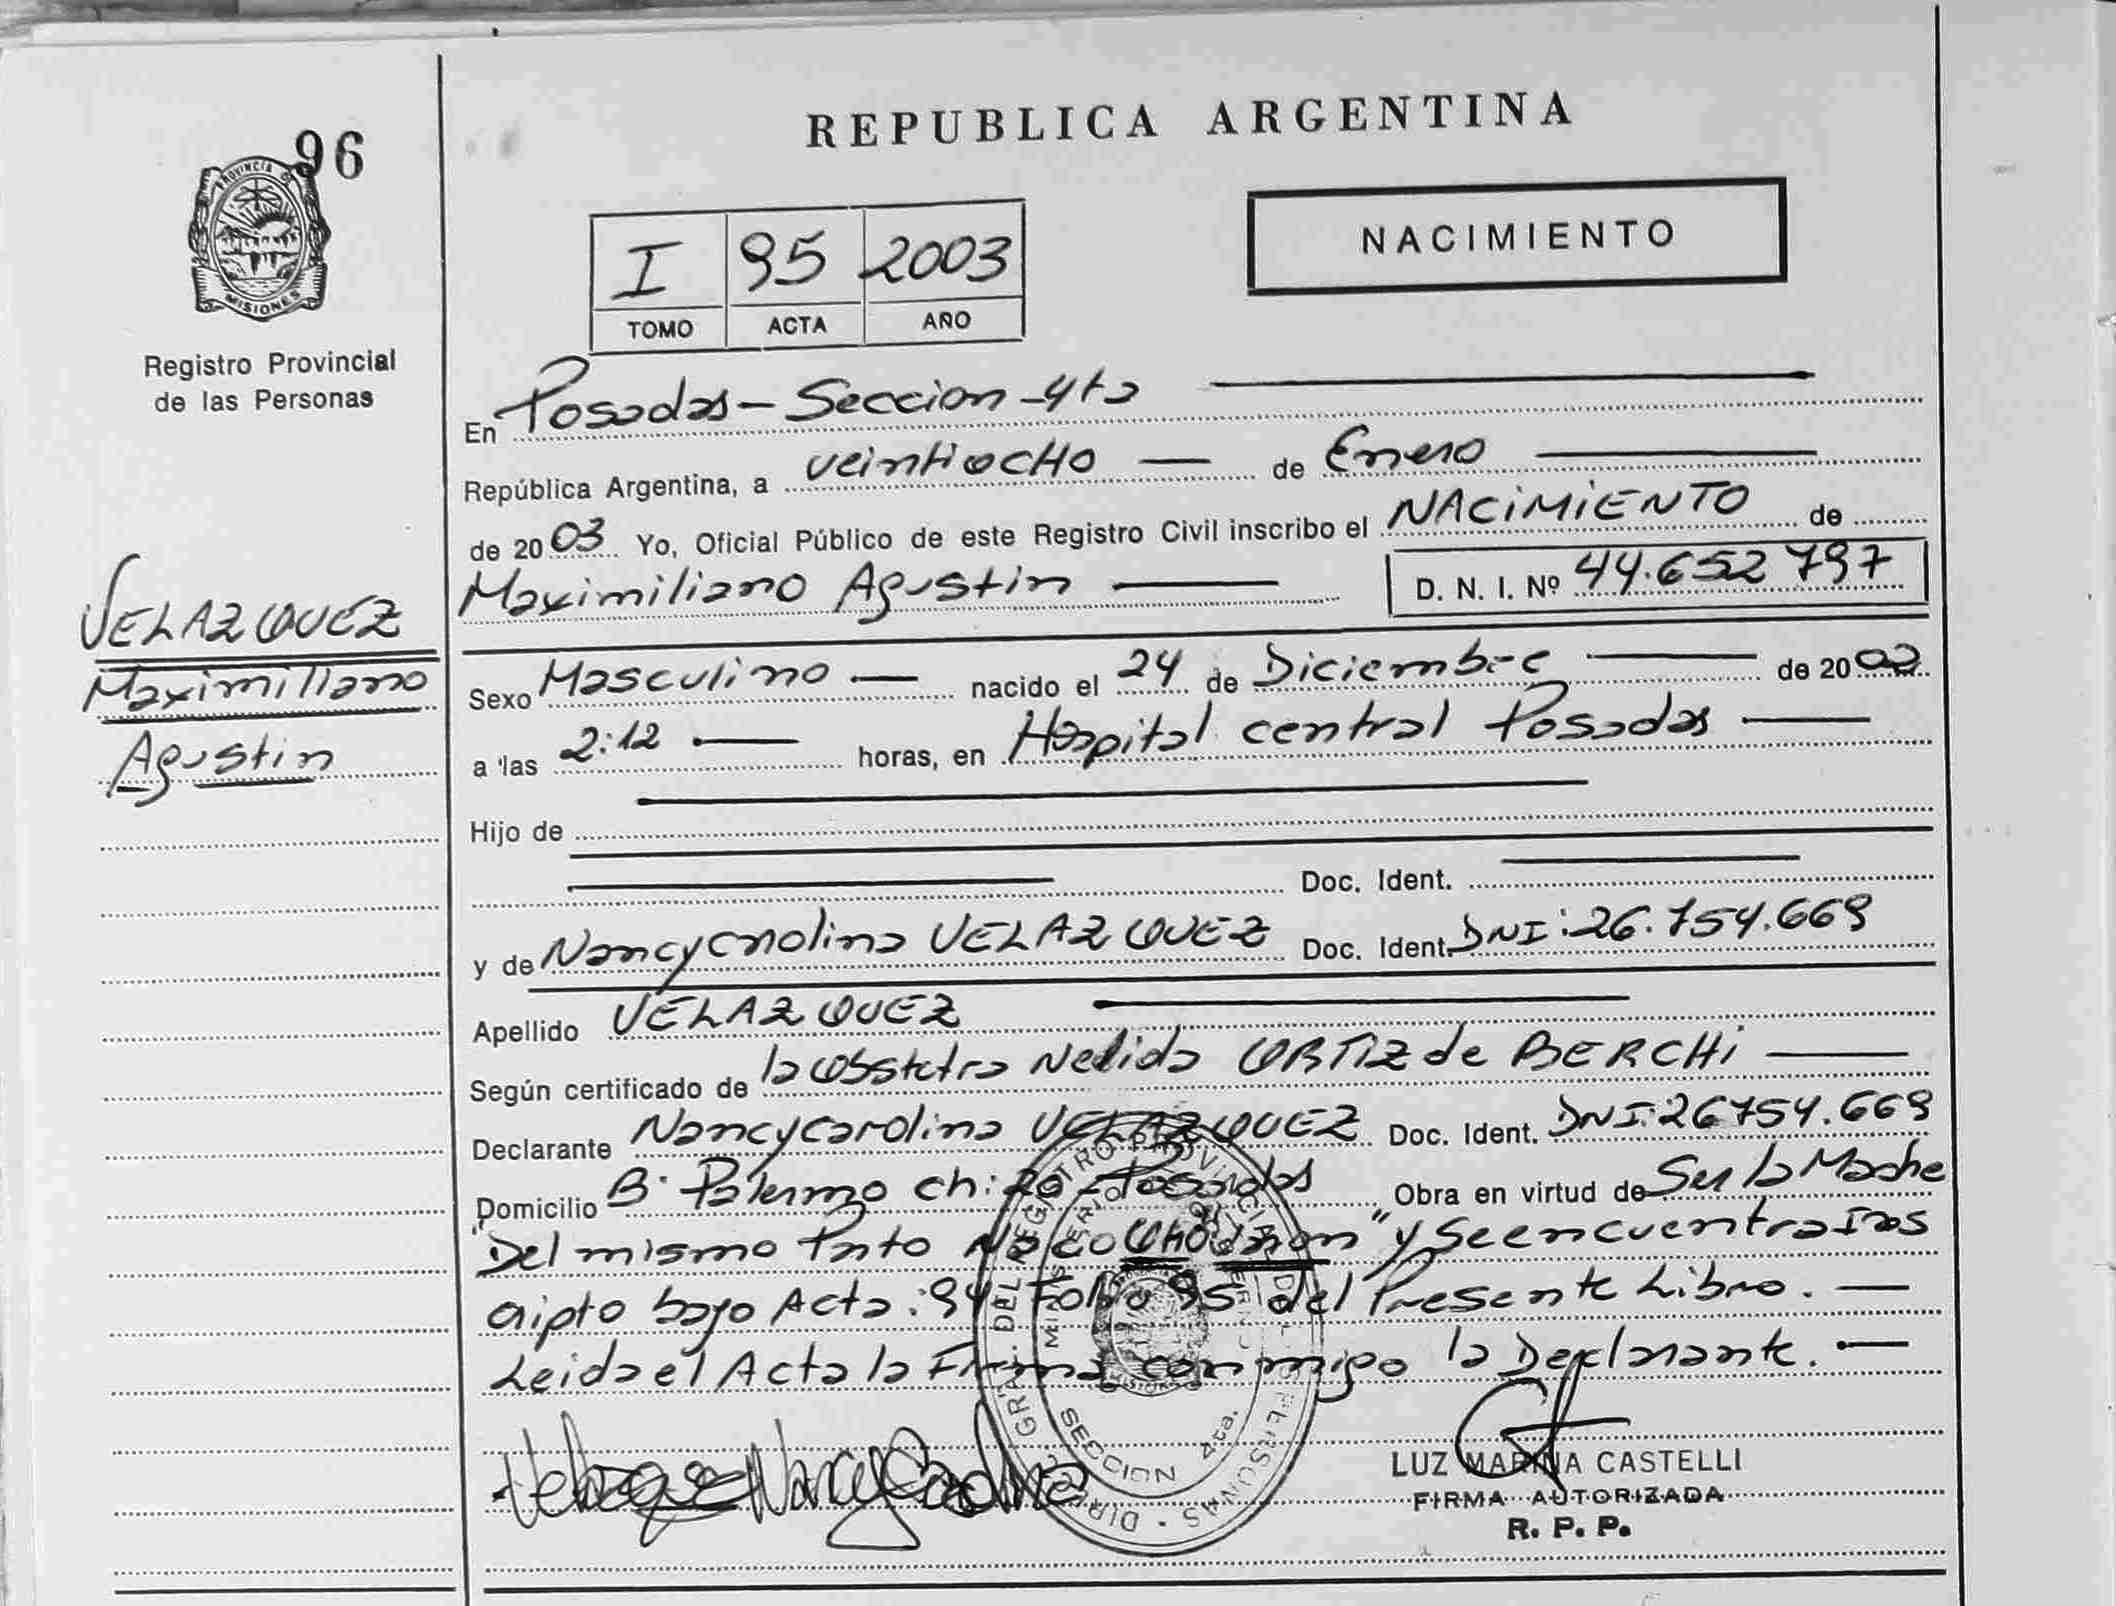 96
PROVINCIA D
MISIONES
Registro Provincial
de las Personas
VELAZQUEZ
Maximiliano
Agustin
REPUBLICA ARGENTINA
NACIMIENTO
I 95 2003
TOMO ACTA AÑO
En Posadas - Seccion - 4ta
República Argentina, a veintiocho de Enero
de 2003 Yo, Oficial Público de este Registro Civil inscribo el NACIMIENTO de
Maximiliano Agustin D. N. I. Nº 44.652 797
Sexo Masculino nacido el 24 de Diciembre de 2002
a las 2:12 horas, en Hospital central Posadas
Hijo de
Doc. Ident.
y de Nancy Carolina VELAZQUEZ Doc. Ident. DNI: 26.754.669
Apellido VELAZQUEZ
Según certificado de la Obstetra Nelida ORTIZ de BERCHI
Declarante Nancy Carolina VELAZQUEZ Doc. Ident. DNI: 26754.669
Domicilio B. Palermo ch: 20 - Posadas Obra en virtud de Ser la Madre
Del mismo Parto Nacio y Se encuentra Ins
cripto bajo Acta: 94 Folio 95 del Presente Libro.
Leida el Acta la Firma conmigo la Declarante.
Velazquez Nancy Carolina
LUZ MARINA CASTELLI
FIRMA AUTORIZADA
R. P. P.
SECCION 4ta.